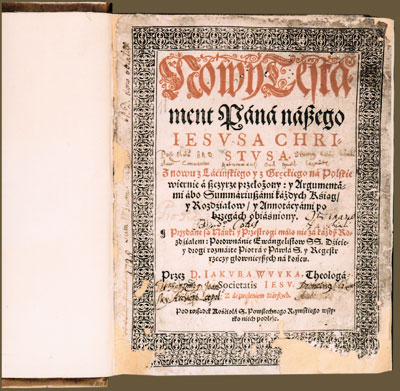 Nowy Testa-
ment Páná nászego
IESVSA CHRI-
STVSA.
Z nowu z Láćińskiego y z Gręckiego ná Polskie
wiernie á szczyrze przełożony: y Argumentá-
mi ábo Summáriuszámi káżdych Kśiąg/
y Rozdźiałow/ y Annotácyámi po
brzegách obiáśniony.
Przydáne są Náuki y Przestrogi máło nie zá káżdym Roz-
dźiałem: Porownánie Ewángelistow SS. Dźieie
y drogi rozmáite Piotrá y Páwłá S. y Regestr
rzeczy głownieyszych ná końcu.
Przez D. IAKVBA WVYKA, Theologá
Societatis IESV.
Z dozwoleniem stárszych.
Pod rozsądek Kośćiołá S. Powszechnego Rzymskiego wszy-
tko niech podleże.